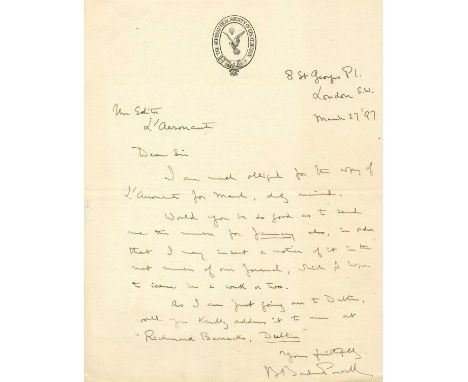 THE AERONAUTICAL SOCIETY OF GREAT BRITAIN
8 St Georges Pl.
London S.W.
March 27 '97
The Editor
L'Aeronaute
Dear Sir
I am much obliged for the copy of
L'Aeronaute for March, duly received.
Would you be so good as to send
me the number for January also, in order
that I may insert a notice of it in the
next number of our Journal, which I hope
to issue in a week or two.
As I am just going over to Dublin,
will you kindly address it to me at
"Richmond Barracks, Dublin"
Yours faithfully
B Baden Powell